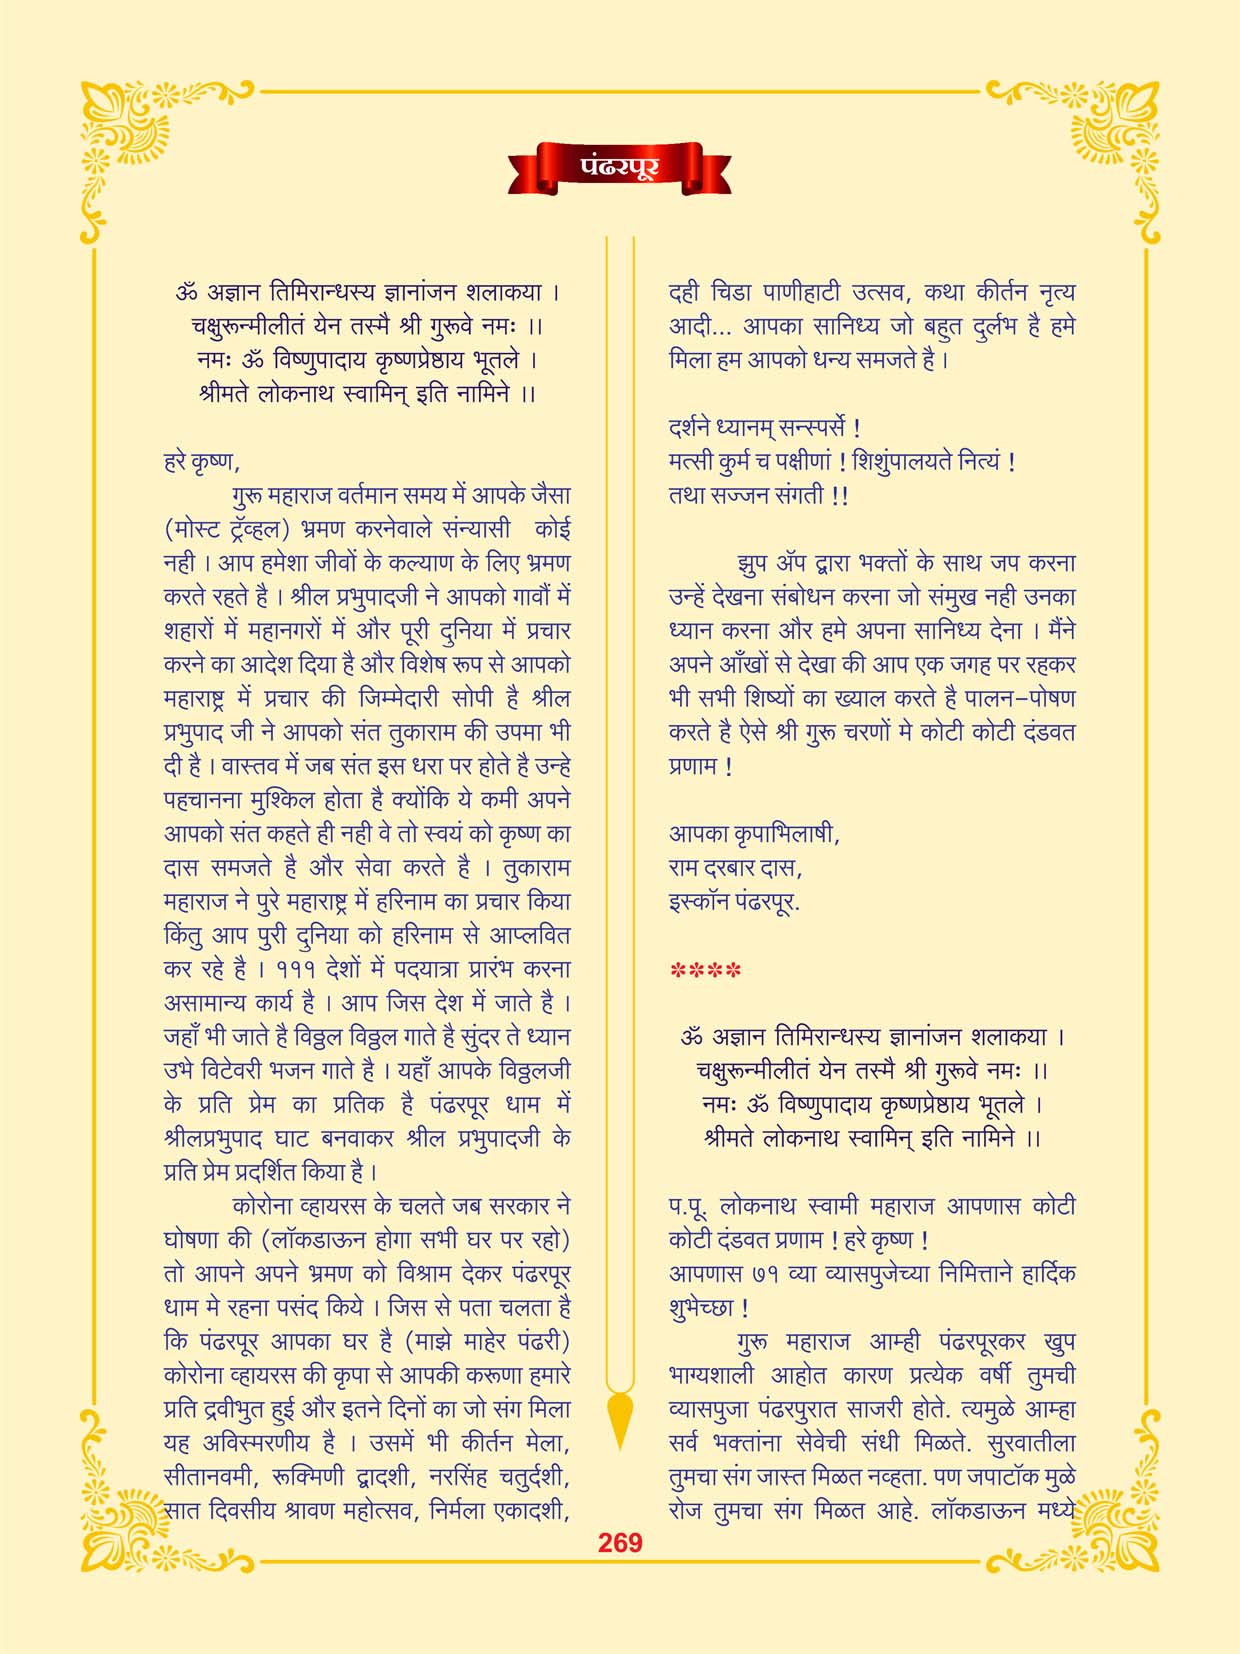 पंढरपूर
ॐ अज्ञान तिमिरान्धस्य ज्ञानांजन शलाकया ।
चक्षुरून्मीलीतं येन तस्मै श्री गुरूवे नमः ।।
नमः ॐ विष्णुपादाय कृष्णप्रेष्ठाय भूतले ।
श्रीमते लोकनाथ स्वामिन् इति नामिने ।।
हरे कृष्ण,
गुरू महाराज वर्तमान समय में आपके जैसा
(मोस्ट ट्रॅव्हल) भ्रमण करनेवाले संन्यासी कोई
नही । आप हमेशा जीवों के कल्याण के लिए भ्रमण
करते रहते है । श्रील प्रभुपादजी ने आपको गावौं में
शहारों में महानगरों में और पूरी दुनिया में प्रचार
करने का आदेश दिया है और विशेष रूप से आपको
महाराष्ट्र में प्रचार की जिम्मेदारी सोपी है श्रील
प्रभुपाद जी ने आपको संत तुकाराम की उपमा भी
दी है । वास्तव में जब संत इस धरा पर होते है उन्हे
पहचानना मुश्किल होता है क्योंकि ये कमी अपने
आपको संत कहते ही नही वे तो स्वयं को कृष्ण का
दास समजते है और सेवा करते है । तुकाराम
महाराज ने पुरे महाराष्ट्र में हरिनाम का प्रचार किया
किंतु आप पुरी दुनिया को हरिनाम से आप्लवित
कर रहे है । १११ देशों में पदयात्रा प्रारंभ करना
असामान्य कार्य है । आप जिस देश में जाते है ।
जहाँ भी जाते है विठ्ठल विठ्ठल गाते है सुंदर ते ध्यान
उभे विटेवरी भजन गाते है । यहाँ आपके विठ्ठलजी
के प्रति प्रेम का प्रतिक है पंढरपूर धाम में
श्रीलप्रभुपाद घाट बनवाकर श्रील प्रभुपादजी के
प्रति प्रेम प्रदर्शित किया है ।
कोरोना व्हायरस के चलते जब सरकार ने
घोषणा की (लॉकडाऊन होगा सभी घर पर रहो)
तो आपने अपने भ्रमण को विश्राम देकर पंढरपूर
धाम मे रहना पसंद किये । जिस से पता चलता है
कि पंढरपूर आपका घर है (माझे माहेर पंढरी)
कोरोना व्हायरस की कृपा से आपकी करूणा हमारे
प्रति द्रवीभुत हुई और इतने दिनों का जो संग मिला
यह अविस्मरणीय है । उसमें भी कीर्तन मेला,
सीतानवमी, रूक्मिणी द्वादशी, नरसिंह चतुर्दशी,
सात दिवसीय श्रावण महोत्सव, निर्मला एकादशी,
दही चिडा पाणीहाटी उत्सव, कथा कीर्तन नृत्य
आदी... आपका सानिध्य जो बहुत दुर्लभ है हमे
मिला हम आपको धन्य समजते है ।
दर्शने ध्यानम् सन्स्पर्से !
मत्सी कुर्म च पक्षीणां ! शिशुंपालयते नित्यं !
तथा सज्जन संगती !!
झुप ॲप द्वारा भक्तों के साथ जप करना
उन्हें देखना संबोधन करना जो संमुख नही उनका
ध्यान करना और हमे अपना सानिध्य देना । मैंने
अपने आँखों से देखा की आप एक जगह पर रहकर
भी सभी शिष्यों का ख्याल करते है पालन-पोषण
करते है ऐसे श्री गुरू चरणों मे कोटी कोटी दंडवत
प्रणाम !
आपका कृपाभिलाषी,
राम दरबार दास,
इस्कॉन पंढरपूर.
****
ॐ अज्ञान तिमिरान्धस्य ज्ञानांजन शलाकया ।
चक्षुरून्मीलीतं येन तस्मै श्री गुरूवे नमः ।।
नमः ॐ विष्णुपादाय कृष्णप्रेष्ठाय भूतले ।
श्रीमते लोकनाथ स्वामिन् इति नामिने ।।
प.पू. लोकनाथ स्वामी महाराज आपणास कोटी
कोटी दंडवत प्रणाम ! हरे कृष्ण !
आपणास ७१ व्या व्यासपुजेच्या निमित्ताने हार्दिक
शुभेच्छा !
गुरू महाराज आम्ही पंढरपूरकर खुप
भाग्यशाली आहोत कारण प्रत्येक वर्षी तुमची
व्यासपुजा पंढरपुरात साजरी होते. त्यमुळे आम्हा
सर्व भक्तांना सेवेची संधी मिळते. सुरवातीला
तुमचा संग जास्त मिळत नव्हता. पण जपाटॉक मुळे
रोज तुमचा संग मिळत आहे. लॉकडाऊन मध्ये
269